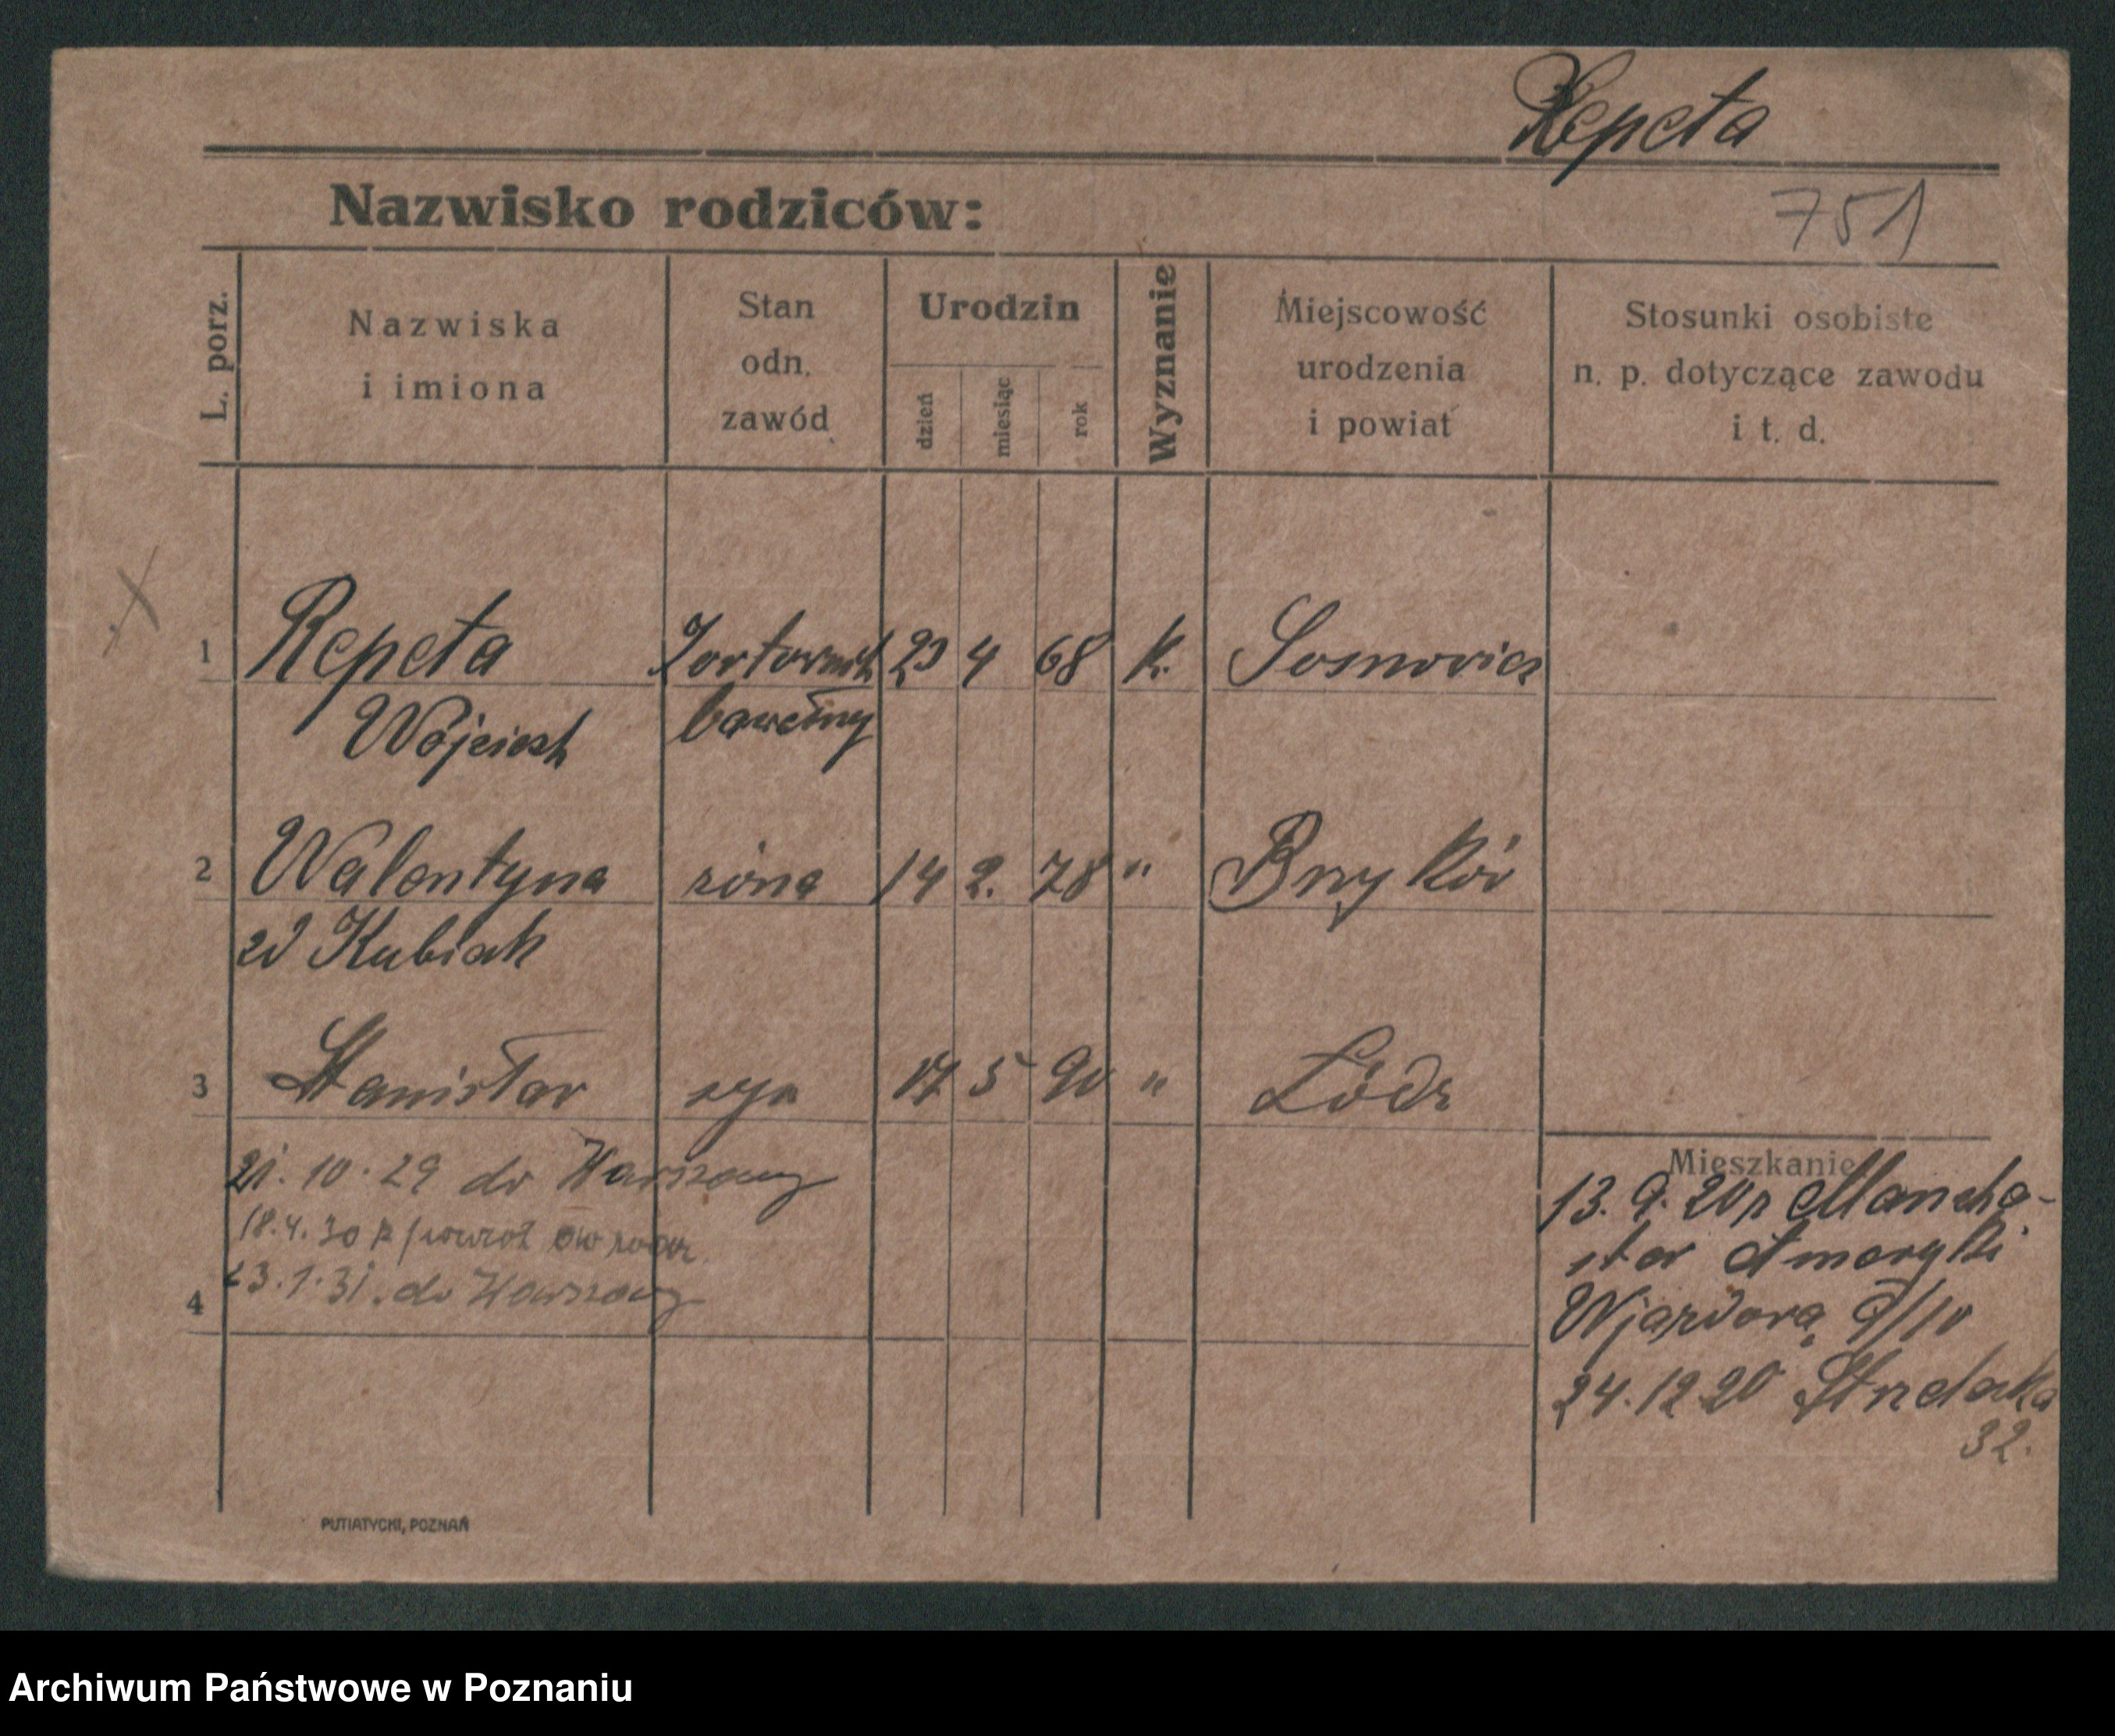 Repeta
Nazwisko rodziców:
751
L. porz.
Nazwiska
i imiona
Stan
odn.
zawód
Urodzin
dzień
miesiąc
rok
Wyznanie
Miejscowość
urodzenia
i powiat
Stosunki osobiste
n. p. dotyczące zawodu
i t. d.
1 Repeta 23 4 68 k. Sosnowice
Wojciech bawełny
2 Walentyna żona 14 2. 78 " Bryków
zd Kubiak
3 Stanisław syn 17 5 90 " Łódz
Mieszkanie
21. 10. 29 do Warszawy
13. 9. 20 z Manche-
18.4.30 z powrot
ster Ameryki
23.1.31. do Warszawy
4
Wjazdową 9/10
24.12 20 Strzelecka
32.
PUTIATYCKI, POZNAŃ
Archiwum Państwowe w Poznaniu